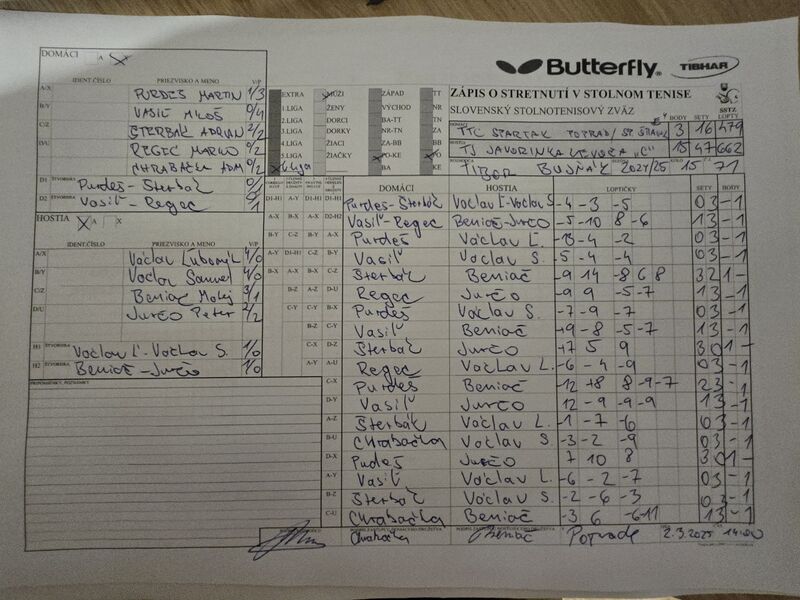 DOMÁCI A X
IDENT.ČÍSLO PRIEZVISKO A MENO V/P
A/X PURDEŠ MARTIN 1/3
B/Y VASIĽ MILOŠ 0/4
C/Z ŠTERBÁK ADRIAN 2/2
D/U REGEC MARKO 0/2
CHRABAČKA ADAM 0/2
D1 ŠTVORHRA Purdeš-Šterbák 0/1
D2 ŠTVORHRA Vasiľ-Regec
HOSTIA A X
IDENT.ČÍSLO PRIEZVISKO A MENO V/P
A/X Václav Ľubomír 4/0
B/Y Václav Samuel 4/0
C/Z Beniač Matej 3/1
D/U Jurčo Peter 2/2
H1 ŠTVORHRA Václav Ľ.-Václav S. 1/0
H2 ŠTVORHRA Beniač-Jurčo 1/0
PRIPOMIENKY, POZNÁMKY
EXTRA MUŽI ZÁPAD TT
1.LIGA ŽENY VÝCHOD NR
2.LIGA DORCI BA-TT TN
3.LIGA DORKY NR-TN ZA
4.LIGA ŽIACI ZA-BB BB
5.LIGA ŽIAČKY PO-KE PO
6.liga BA KE
Butterfly TIBHAR
ZÁPIS O STRETNUTÍ V STOLNOM TENISE
SLOVENSKÝ STOLNOTENISOVÝ ZVÄZ SSTZ
BODY SETY LOPTY
TTC SPARTAK POPRAD/ 3 16 479
TJ JAVORINKA LEVOČA "C" 15 47 662
TIBOR BUJŇÁK 2024/25 15 71
DOMÁCI HOSTIA LOPTIČKY SETY BODY
D1-H1 Purdeš-Šterbák Václav Ľ-Václav S. -4 -3 -5 03 -1
D2-H2 Vasiľ-Regec Beniač-Jurčo -5 -10 8 -6 13 -1
A-X Purdeš Václav Ľ. -13 -4 -2 03 -1
B-Y Vasiľ Václav S. -5 -4 -4 03 -1
C-Z Šterbák Beniač -9 14 -8 6 8 32 1-
D-U Regec Jurčo -9 9 -5 -7 13 -1
A-Y Purdeš Václav S. -7 -9 -7 03 -1
B-X Vasiľ Beniač +9 -8 -5 -7 13 -1
Šterbák Jurčo +7 5 9 30 1-
Regec Václav L. -6 -4 -9 03 -1
C-X Purdeš Beniač -12 +8 8 -9 -7 23 -1
D-Y Vasiľ Jurčo 12 -9 -9 -9 13 -1
A-Z Šterbák Václav L. -1 -7 -6 03 -1
B-U Chrabačka Václav S. -3 -2 -9 03 -1
D-X Pudeš Jurčo 7 10 8 30 1-
A-Y Vasiľ Václav L. -6 -2 -7 03 -1
B-Z Šterbák Václav S. -2 -6 -3 03 -1
C-U Chrabačka Beniač -3 6 -6 -11 13 -1
Chrabačka Beniač Poprade 2.3.2025 14:00